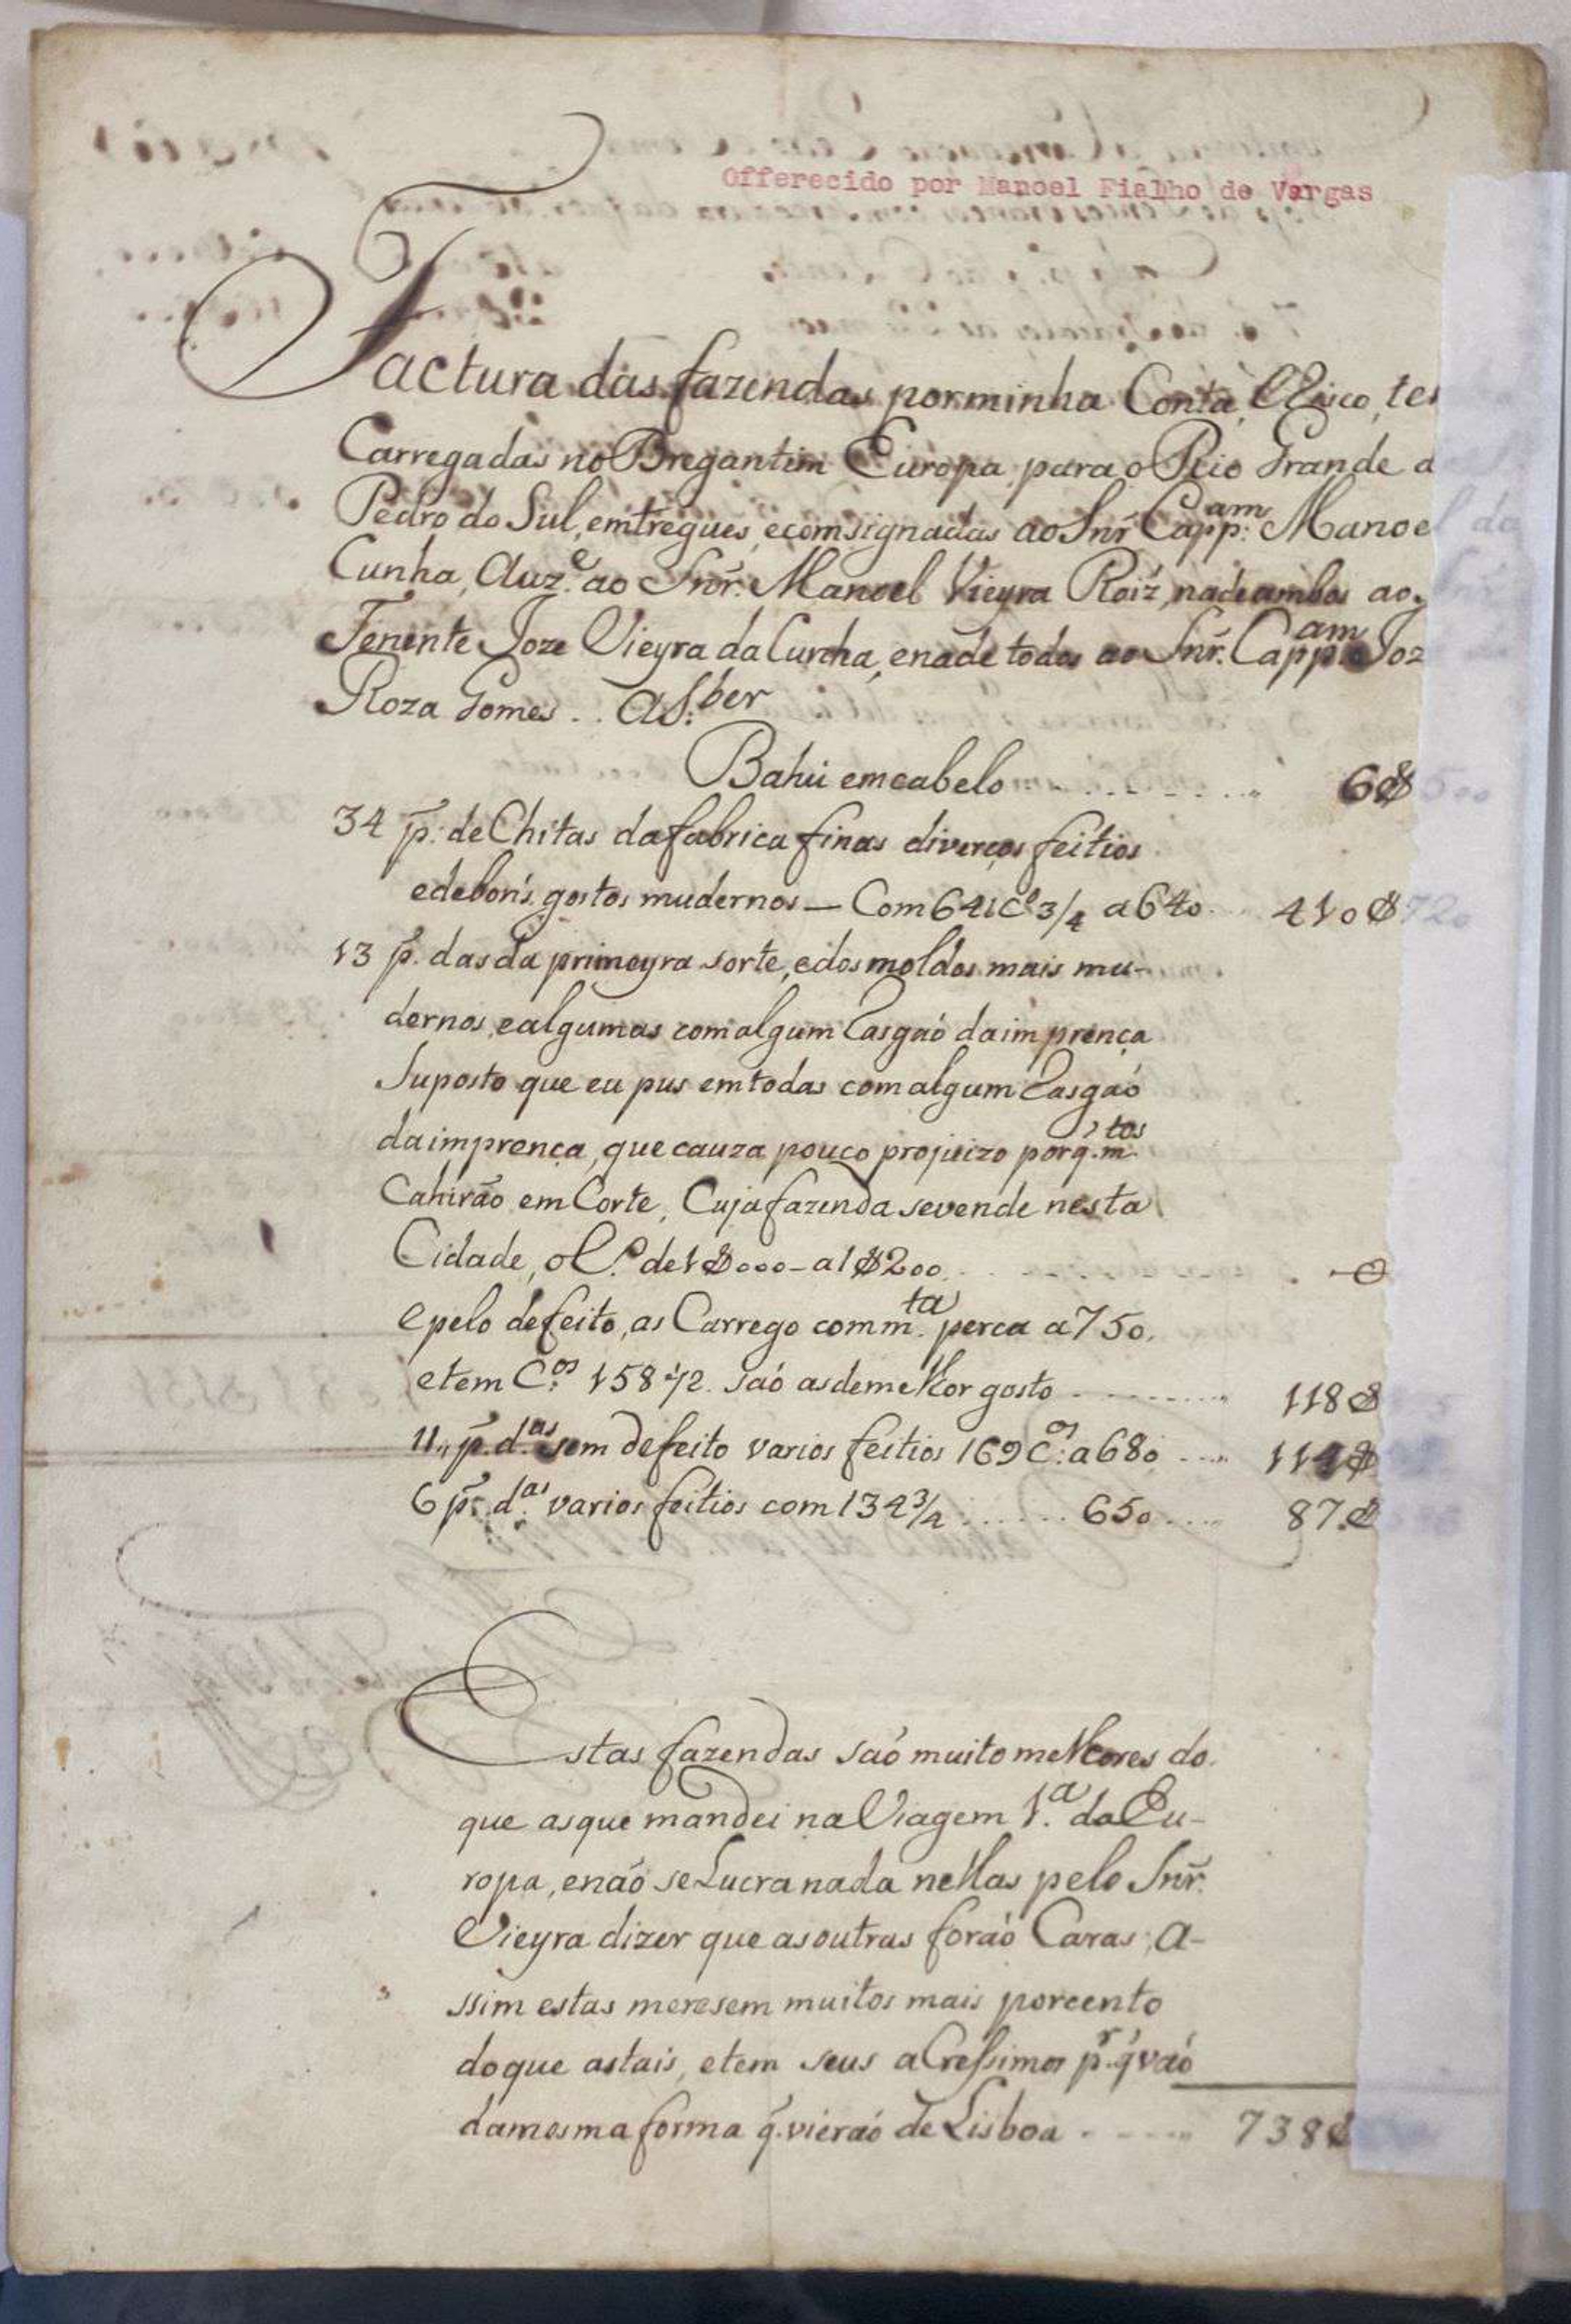 Offerecido por Manoel Fialho de Vargas
Factura das fazendas por minha Conta, e Risco, ter
Carregadas no Bregantim Europa, para o Rio Grande d
Pedro do Sul, emtregues, e comsignadas ao Snr̃ Capp:am Manoel da
Cunha, Auz.e ao Snr̃. Manoel Vieyra Roiz̃, na de ambos ao
Tenente Joze Vieyra da Cunha, e na de todos ao Snr̃. Capp.am Joz
Roza Gomes .. A S.ber
Bahú em cabelo 6$500
34 p̃. de Chitas da fabrica finas diverços feitios
e de bons gostos mudernos — Com 641 C.os 3/4 a 640 410$720
13 p̃. das da primeyra sorte, e dos moldes mais mu-
dernos, e algumas com algum Rasgaõ da imprença
Suposto que eu pus em todas com algum Rasgaõ
da imprença, que cauza pouco projuizo por q̃. m.tos
Cahiraõ em Corte, Cuja fazenda se vende nesta
Cidade, o C.o de 1$000 - a 1$200
e pelo defeito, as Carrego com m.ta perca a 750.
e tem C.os 158 1/2. saõ as de melhor gosto 118$
11,, p̃. d.as sem defeito varios feitios 169 C.os a 680 114$
6 p̃. d.as varios feitios com 134 3/4 650 87$
Estas fazendas saõ muito melhores do
que as que mandei na Viagem 1.a da Eu-
ropa, e naõ se Lucra nada nellas pelo Snr̃.
Vieyra dizer que as outras foraõ Caras, A-
ssim estas meresem muitos mais por cento
do que as tais, e tem seus aCressimos p.r q̃ vaõ
da mesma forma q̃. vieraõ de Lisboa 738$